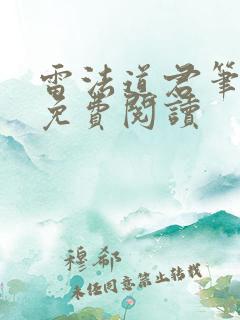 雷法道君筆
免費閱讀
穆郗
未經同意禁止轉載